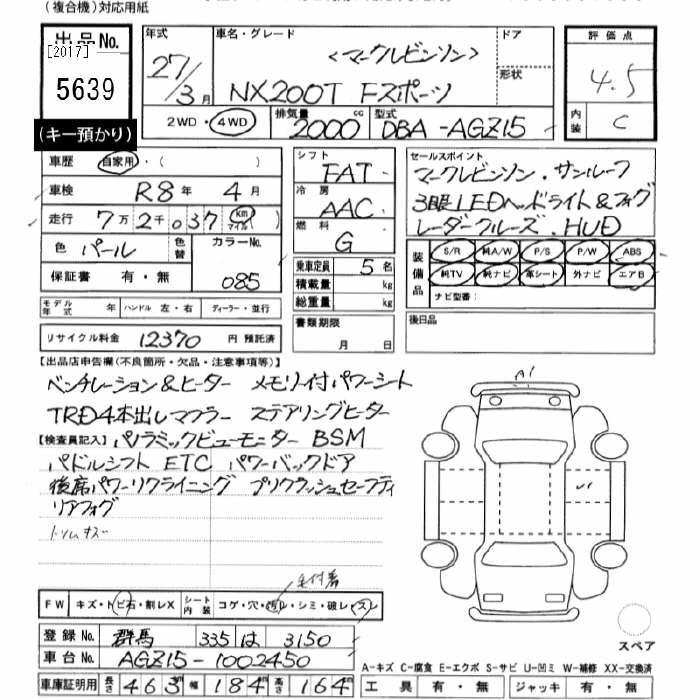 (複合機)対応用紙
出品No.
[2017]
5639
(キー預かり)
年式 車名・グレード ドア 形状
<マークレビンソン>
27/3月 NX200T Fスポーツ
2WD・4WD 排気量 2000 cc 型式 DBA-AGZ15
評価点
4.5
内装 C
車歴 自家用・( )
車検 R8年 4月
走行 7万2千037 km マイル
色 パール 色替 カラーNo. 085
保証書 有・無
シフト FAT
冷房 AAC
燃料 G
乗車定員 5名
積載量 kg
総重量 kg
セールスポイント
マークレビンソン・サンルーフ
3眼LEDヘッドライト&フォグ
レーダークルーズ・HUD
装備品 S/R 純A/W P/S P/W ABS
純TV 純ナビ 革シート 外ナビ エアB
ナビ型番:
モデル年式 年 ハンドル 左・右 ディーラー・並行
書類期限 月 日
後日品
リサイクル料金 12370 円 預託済
【出品店申告欄(不良箇所・欠品・注意事項等)】
ベンチレーション&ヒーター メモリ付パワーシート
TRD4本出しマフラー ステアリングヒーター
【検査員記入】パノラミックビューモニター BSM
パドルシフト ETC パワーバックドア
後席パワーリクライニング プリクラッシュセーフティ
リアフォグ
トリムキズ
A1
FW キズ・トビ石・割レX シート内装 コゲ・穴・汚レ・シミ・破レ・スレ
登録No. 群馬 335 は 3150
車台No. AGZ15-1002450
車庫証明用 長さ 463 幅 184 高さ 164
スペア
A-キズ C-腐食 E-エクボ S-サビ U-凹ミ W-補修 XX-交換済
工具 有・無 ジャッキ 有・無